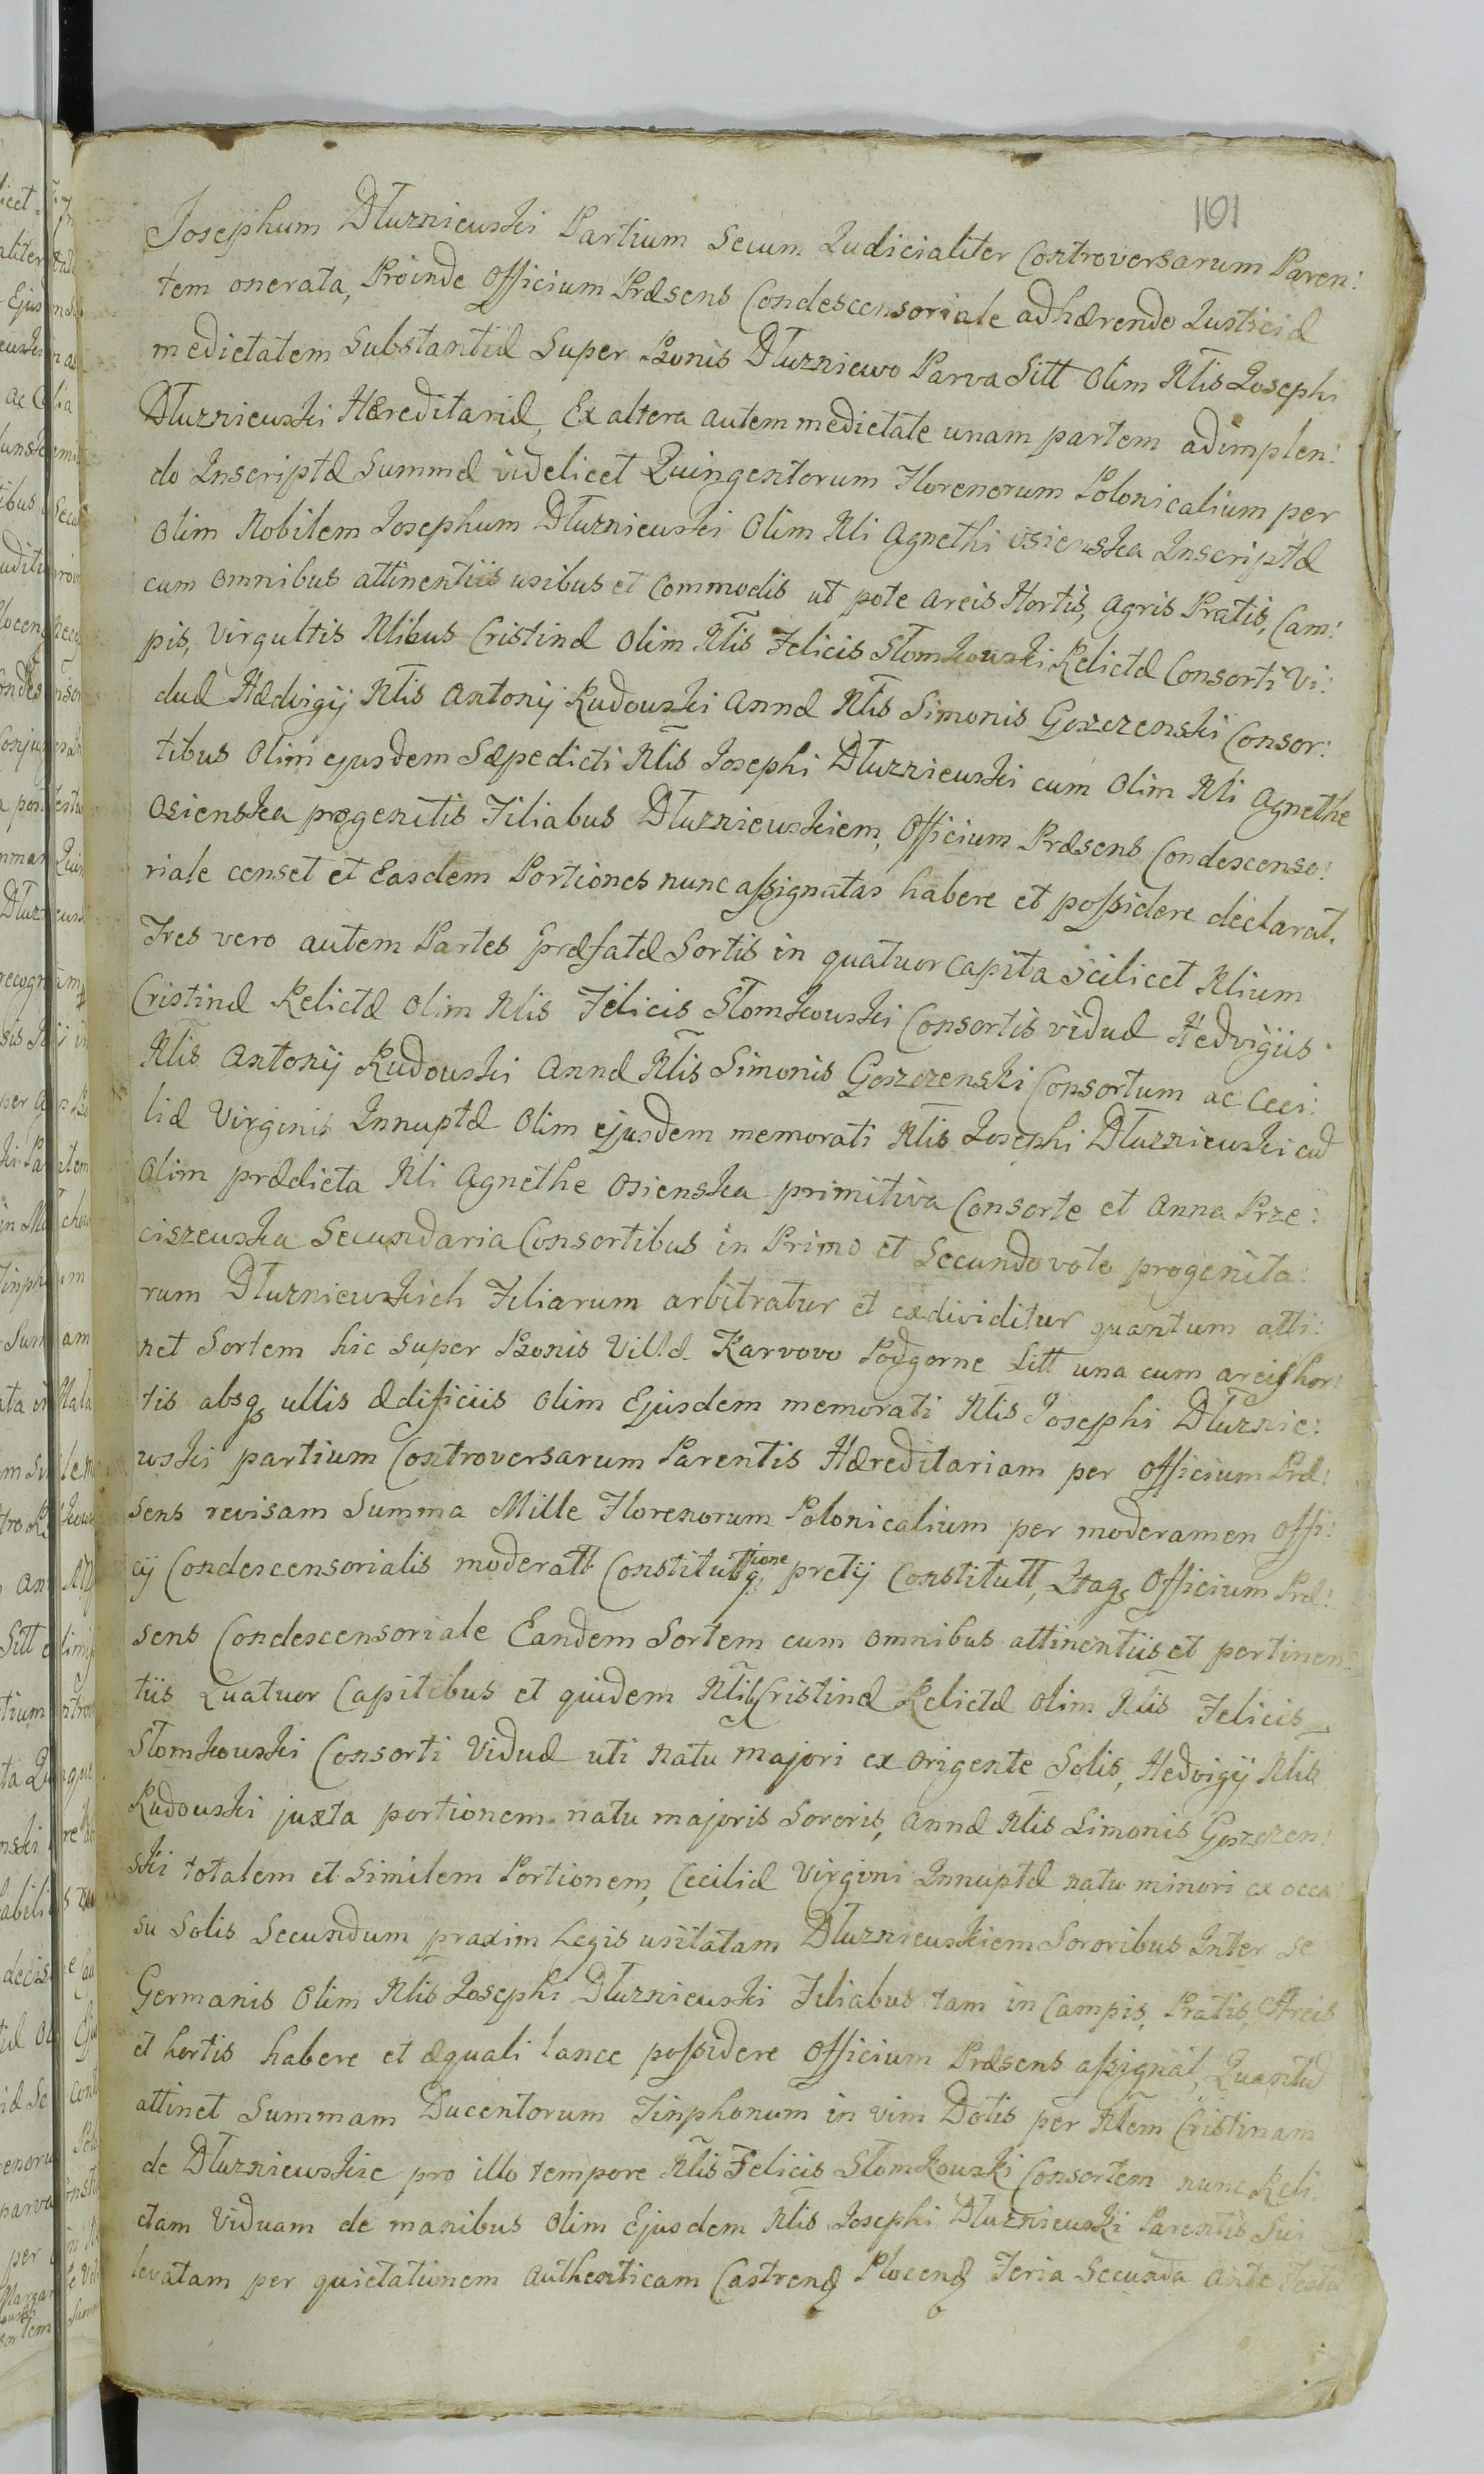 1101
Josephum Dłuzniewski Partium Secum Judicialiter Controversarum Paren:
tem onerata, Proinde Officium Præsens Condescensoriale adhærendo Justiciæ
medietatem Substantiæ Super Bonis Dłuzniewo Parva Sitt Olim Nłis Josephi
Dłuzniewski Hæreditariæ, Ex altera autem medietate unam partem adimplen:
do Inscriptæ Summæ videlicet Quingentorum Florenorum Polonicalium per
Olim Nobilem Josephum Dłuzniewski Olim Nli Agnethi Osienska Inscriptæ
cum omnibus attinentiis usibus et Commodis ut pote Areis Hortis, Agris Pratis, Cam:
pis, Virgultis Nlibus Cristinæ Olim Nłis Felicis Słomkowski Relictæ Consorti Vi:
duæ Hædvigij Nłis Antonij Rudowski Annæ Nłis Simonis Goszczenski Consor:
tibus Olim ejusdem Sæpedicti Nłis Josephi Dłuzniewski cum Olim Nli Agnethe
Osienska progenitis Filiabus Dłuzniewskiem, Officium Præsens Condescenso:
riale censet et Easdem Portiones nunc assignatas habere et possidere declarat.
Tres vero autem Partes Præfatæ Sortis in quatuor Capita Scilicet Nlium
Cristinæ Relictæ Olim Nłis Felicis Słomkowski Consortis viduæ Hedvigijs
Nłis Antonij Rudowski Annæ Nłis Simonis Goszczenski Consortum ac Ceci:
liæ Virginis Innuptæ Olim ejusdem memorati Nłis Josephi Dłuzniewski cū
Olim prædicta Nli Agnethe Osienska primitiva Consorte et Anna Prze:
ciszewska Secundaria Consortibus in Primo et Secundo voto progenita:
rum Dłuzniewskich Filiarum arbitratur et exdividitur quantum atti:
net Sortem hic Super Bonis Villæ Karvovo Podgorne Sitt una cum areis hor:
tis absq ullis ædificiis Olim Ejusdem memorati Nłis Josephi Dłuznie:
wski partium Controversarum Parentis Hæreditariam per Officium Præ:
sens revisam Summa Mille Florenorum Polonicalium per moderamen Offi:
cij Condescensorialis moderatt Constitutt q ione pretij Constitutt, Itaq Officium Præ:
sens Condescensoriale Eandem Sortem cum omnibus attinentiis et pertinen:
tiis Quatuor Capitibus et quidem Nlib Cristinæ Relictæ Olim Nłis Felicis
Słomkowski Consorti Viduæ uti natu majori ex Origente Solis, Hedvigij Nlis
Rudowski juxta portionem natu majoris Sororis, Annæ Nłis Simonis Goszczen:
ski totalem et Similem Portionem, Ceciliæ Virgini Innuptæ natu minori ex occa
su Solis Secundum praxim Legis usitatam Dłuzniewskiem Sororibus Inter Se
Germanis Olim Nłis Josephi Dłuzniewski Filiabus tam in Campis, Pratis, Areis
et hortis habere et æquali lance possidere Officium Præsens assignat, Quantū
attinet Summam Ducentorum Tinphonum in vim Dotis per Nłem Cristinam
de Dłuzniewskie pro illo tempore Nłis Felicis Słomkowski Consortem nunc Reli
ctam Viduam de manibus Olim Ejusdem Nłis Josephi Dłuzniewski Parentis Sui
levatam per quietationem Authenticam Castren Plocen Feria Secunda ante Festū